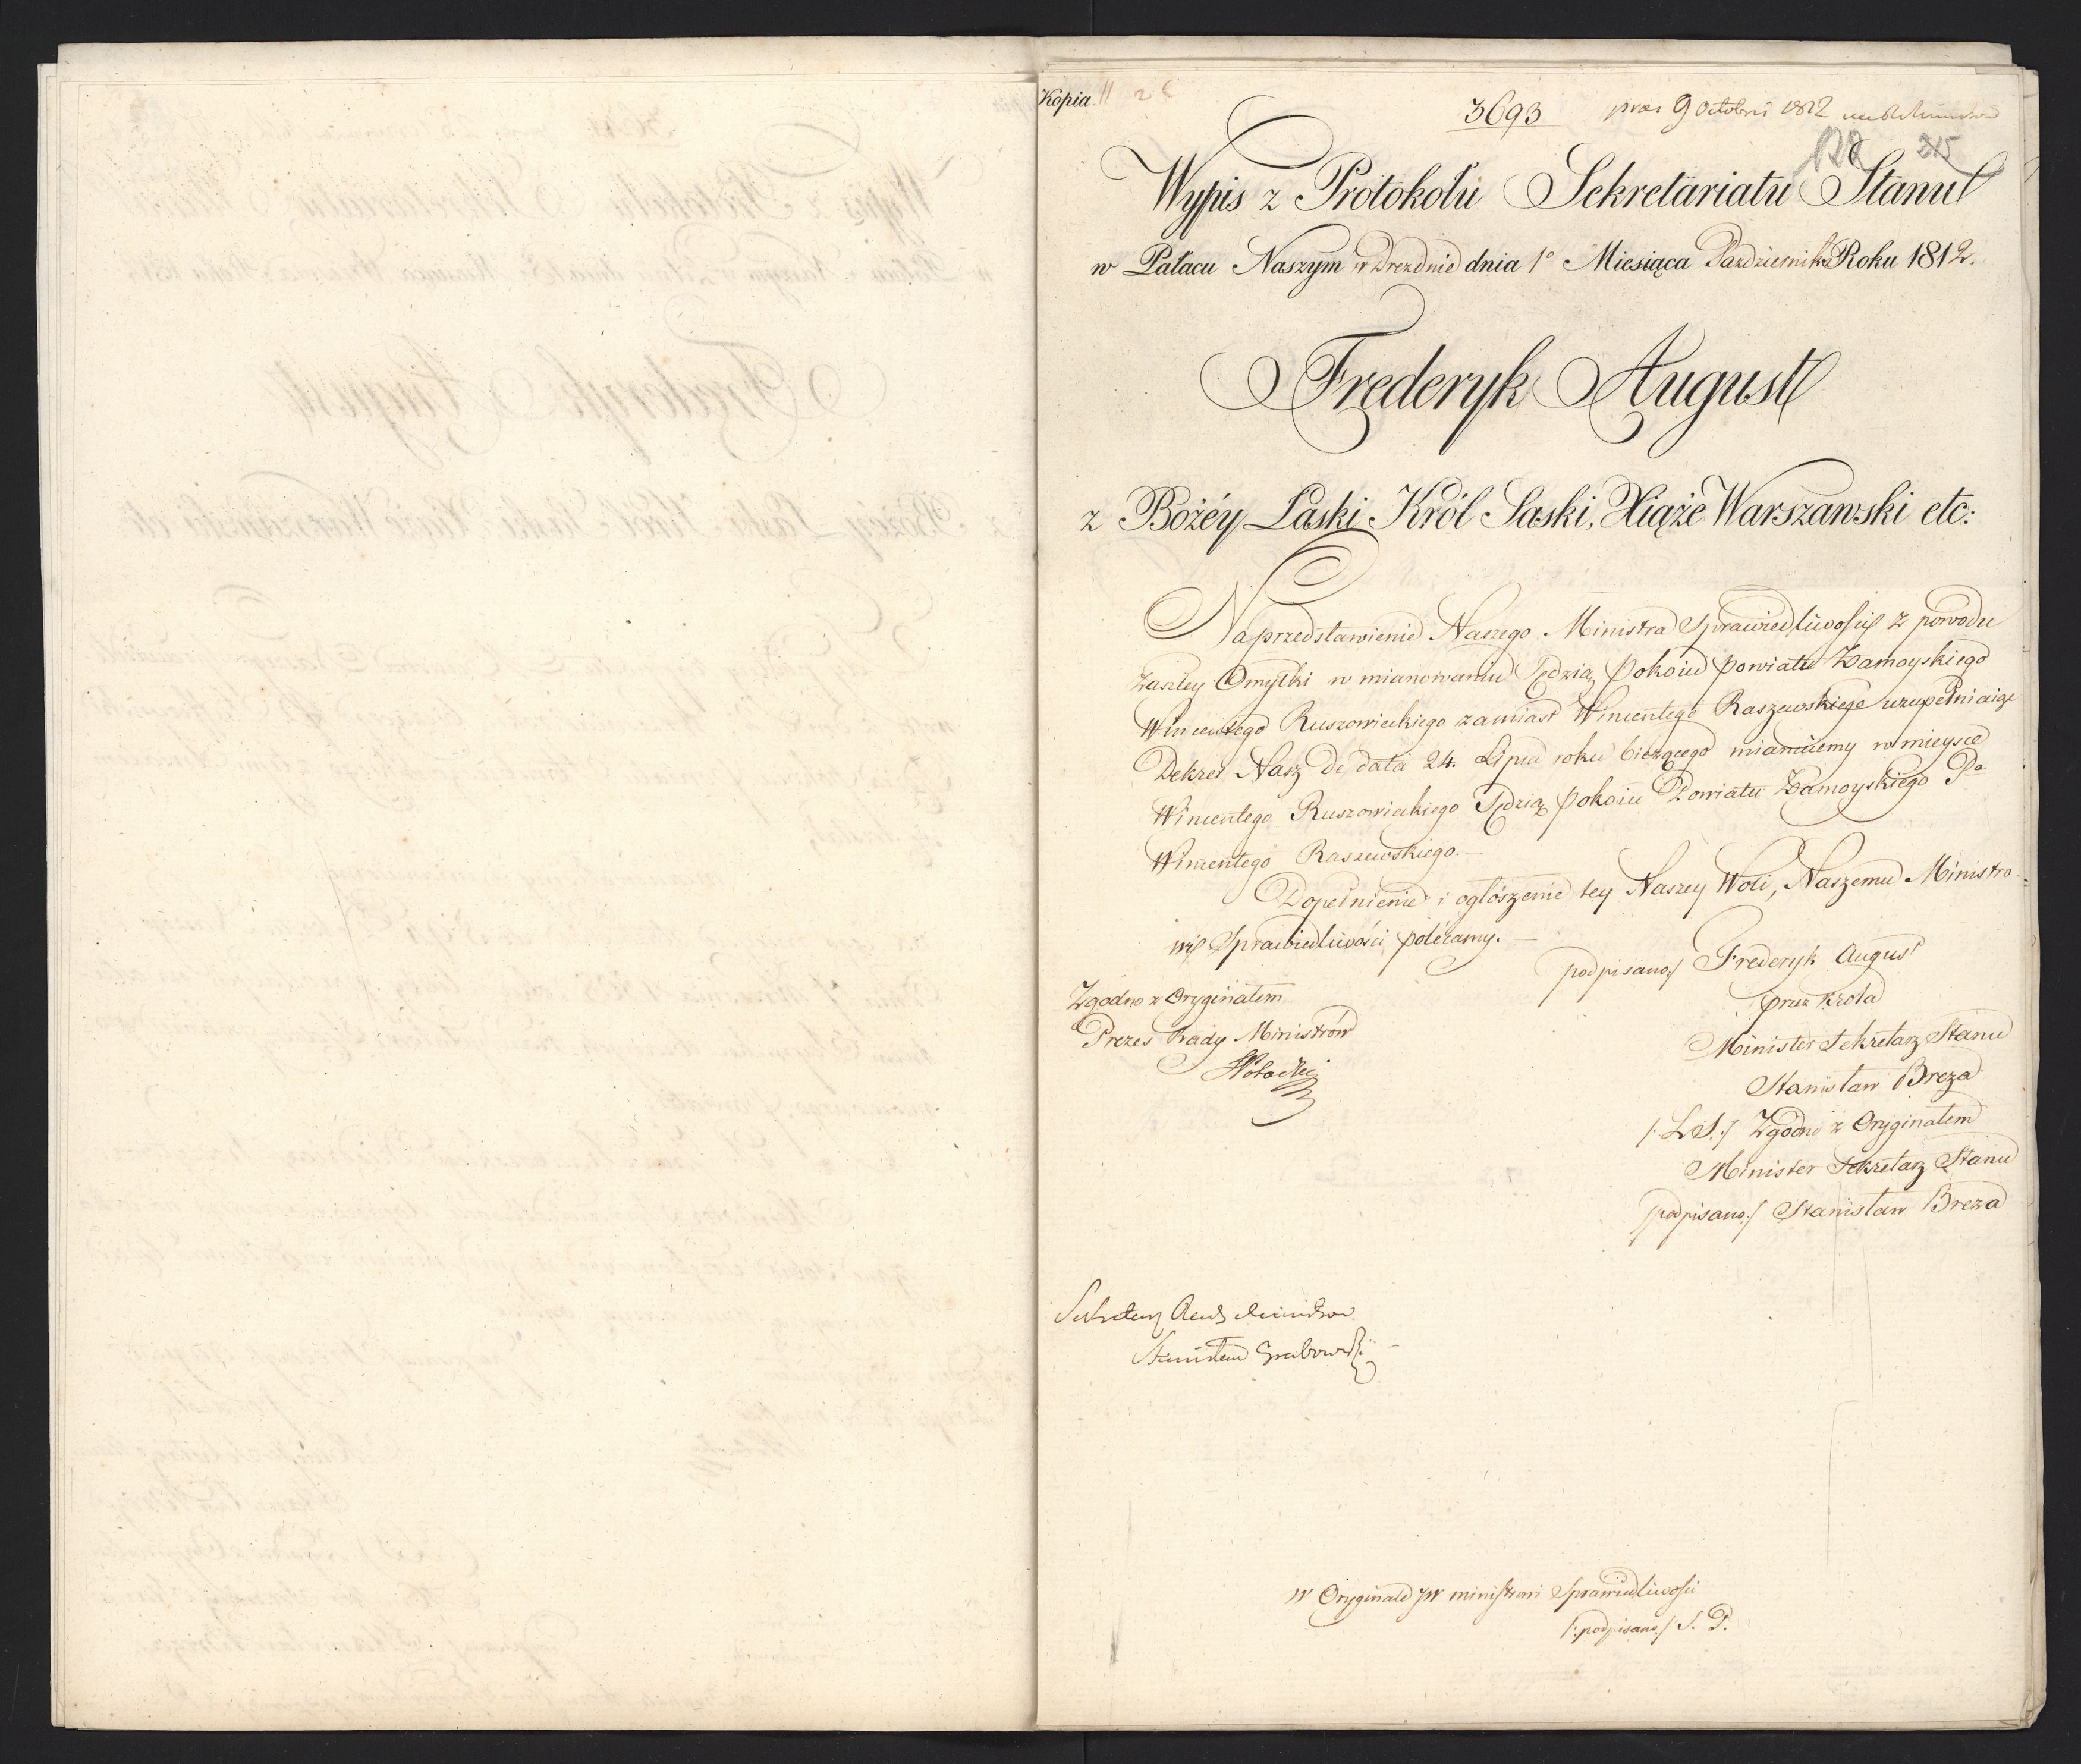 Kopia
3693 præs 9 Octobris 1812
128 215
Wypis z Protokołu Sekretariatu Stanu
w Pałacu Naszym w Dreznie dnia 1º Miesiąca Pazdziernika Roku 1812.
Frederyk August
z Bożéy Łaski Król Saski, Xiąże Warszawski etc:
Na przedstawienie Naszego Ministra Sprawiedliwości z powodu
zaszłey Omyłki w mianowaniu Sędzią Pokoiu Powiatu Zamoyskiego
Wincentego Ruszowieckiego zamiast Wincentego Raszewskiego uzupełniaiąc
Dekret Nasz de data 24. Lipca roku bieżącego mianuiemy w mieysce
Wincentego Ruszowieckiego Sędzią Pokoiu Powiatu Zamoyskiego Pa
Wincentego Raszewskiego.—
Dopełnienie i ogłoszenie tey Naszey Woli, Naszemu Ministro=
wi Sprawiedliwości, polécamy.—
podpisano/ Frederyk August
przez Krola
Minister Sekretarz Stanu
Stanisław Breza
/:L.S.:/ Zgodno z Oryginałem
Minister Sekretarz Stanu
/podpisano:/ Stanisław Breza
Zgodno z Oryginałem
Prezes Rady Ministrów
Sekretarz Rady Ministrow
Stanisław Grabowski
w Oryginale JW Ministrowi Sprawiedliwości
/:podpisano:/ S. P.